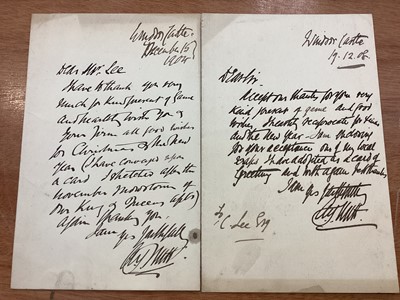 Windsor Castle
December 15
1904
Dear Mr. Lee
I have to thank you very
much for kind present of Game
and heartily wish you &
yours good wishes
for Christmas & the New
Year I have conveyed upon
a card I sketched after the
November Snowstorm of
Our King & Queens
Again thanking you
I am
yrs faithfully
Windsor Castle
19.12.08
Dear Sir
Accept our thanks for your very
kind present of game and good
wishes I heartily reciprocate for Xmas
and the New Year
for your acceptance one of my local
as a card of
greeting and with again
I am yrs faithfully
To
C Lee Esq